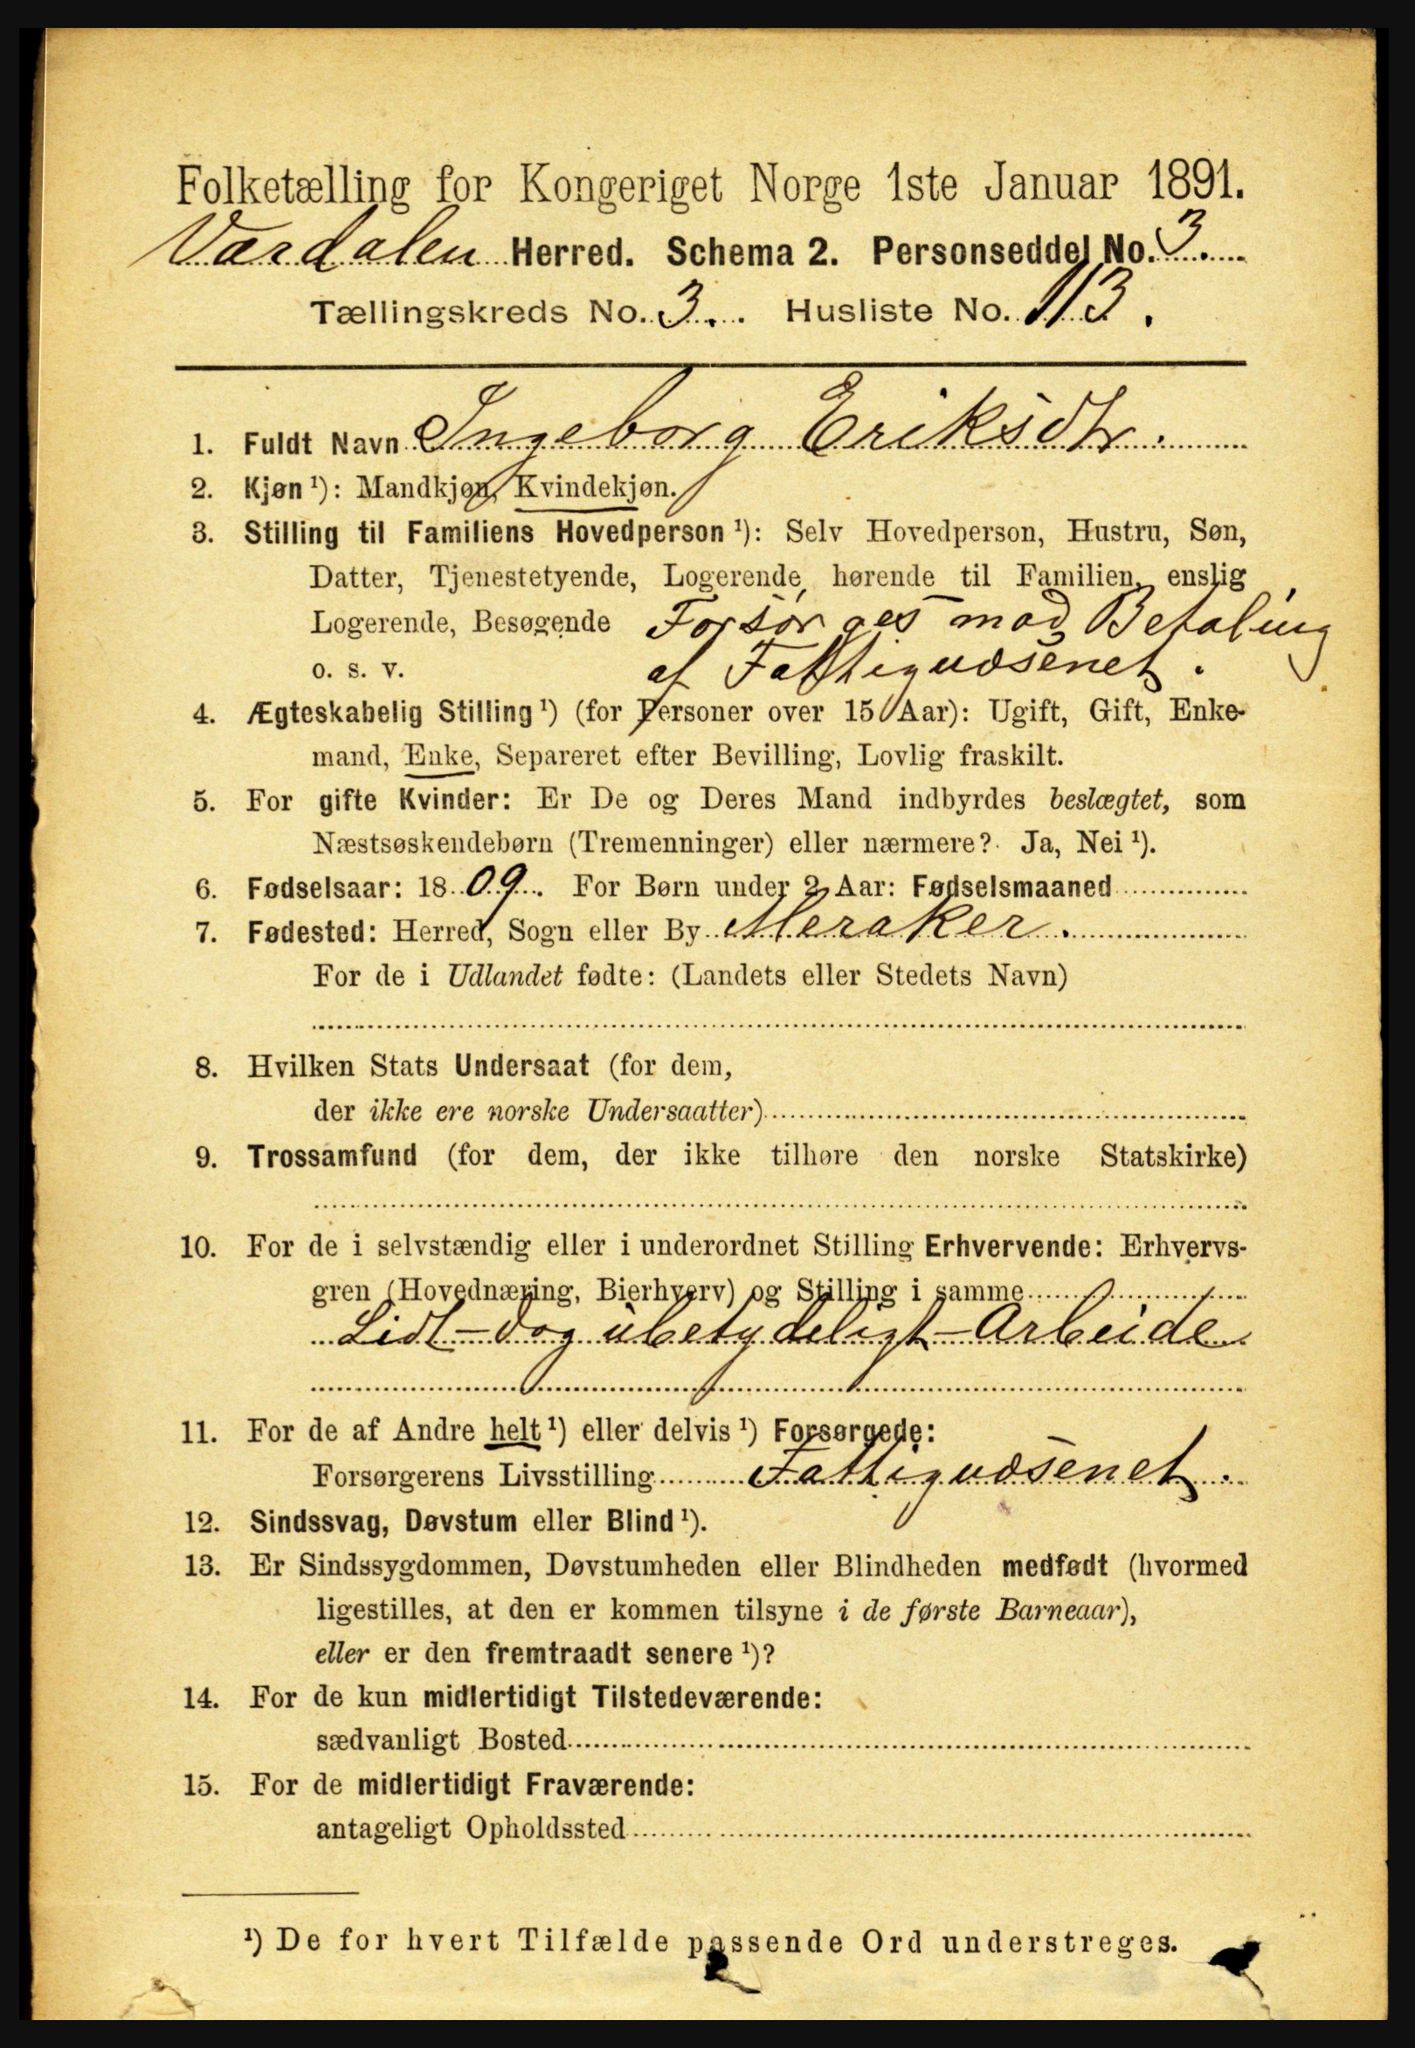 Folketælling for Kongeriget Norge 1ste Januar 1891.
Værdalen Herred. Schema 2. Personseddel No. 3.
Tællingskreds No. 3. Husliste No. 113.
1. Fuldt Navn Ingeborg Eriksdtr.
2. Kjøn ¹): Mandkjøn, Kvindekjøn.
3. Stilling til Familiens Hovedperson ¹): Selv Hovedperson, Hustru, Søn,
Datter, Tjenestetyende, Logerende hørende til Familien, enslig
Logerende, Besøgende Forsørges mod Betaling
o. s. v. af Fattigvæsenet.
4. Ægteskabelig Stilling ¹) (for Personer over 15 Aar): Ugift, Gift, Enke-
mand, Enke, Separeret efter Bevilling, Lovlig fraskilt.
5. For gifte Kvinder: Er De og Deres Mand indbyrdes beslægtet, som
Næstsøskendebørn (Tremenninger) eller nærmere? Ja, Nei ¹).
6. Fødselsaar: 1809. For Børn under 2 Aar: Fødselsmaaned
7. Fødested: Herred, Sogn eller By Meraker.
For de i Udlandet fødte: (Landets eller Stedets Navn)
8. Hvilken Stats Undersaat (for dem,
der ikke ere norske Undersaatter)
9. Trossamfund (for dem, der ikke tilhøre den norske Statskirke)
10. For de i selvstændig eller i underordnet Stilling Erhvervende: Erhvervs-
gren (Hovednæring, Bierhverv) og Stilling i samme
Lidt- og ubetydeligt- Arbeide
11. For de af Andre helt ¹) eller delvis ¹) Forsørgede:
Forsørgerens Livsstilling Fattigvæsenet.
12. Sindssvag, Døvstum eller Blind ¹).
13. Er Sindssygdommen, Døvstumheden eller Blindheden medfødt (hvormed
ligestilles, at den er kommen tilsyne i de første Barneaar),
eller er den fremtraadt senere ¹)?
14. For de kun midlertidigt Tilstedeværende:
sædvanligt Bosted
15. For de midlertidigt Fraværende:
antageligt Opholdssted
¹) De for hvert Tilfælde passende Ord understreges.